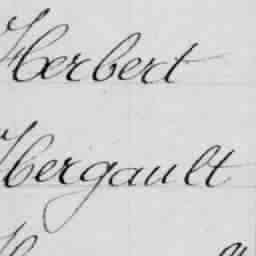 Herbert
Hergault